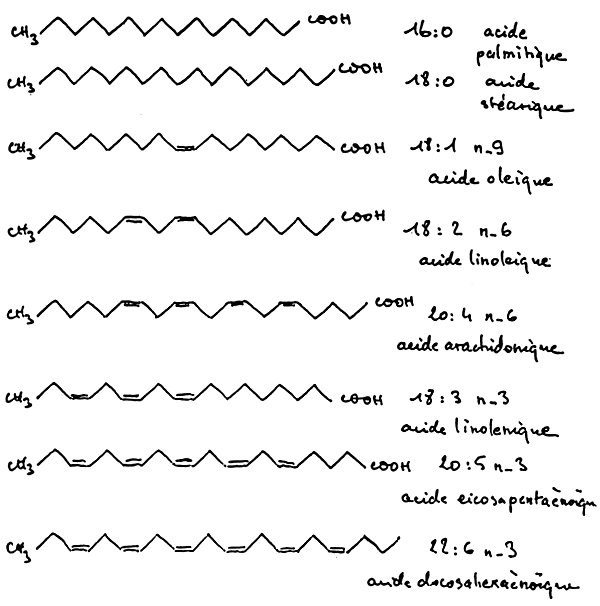 CH3 COOH 16:0 acide
palmitique
CH3 COOH 18:0 acide
stéarique
CH3 COOH 18:1 n-9
acide oleique
CH3 COOH 18:2 n-6
acide linoleique
CH3 COOH 20:4 n-6
acide arachidonique
CH3 COOH 18:3 n-3
acide linolenique
CH3 COOH 20:5 n-3
acide eicosapentaènoïqu
CH3 22:6 n-3
acide docosahexaènoïque